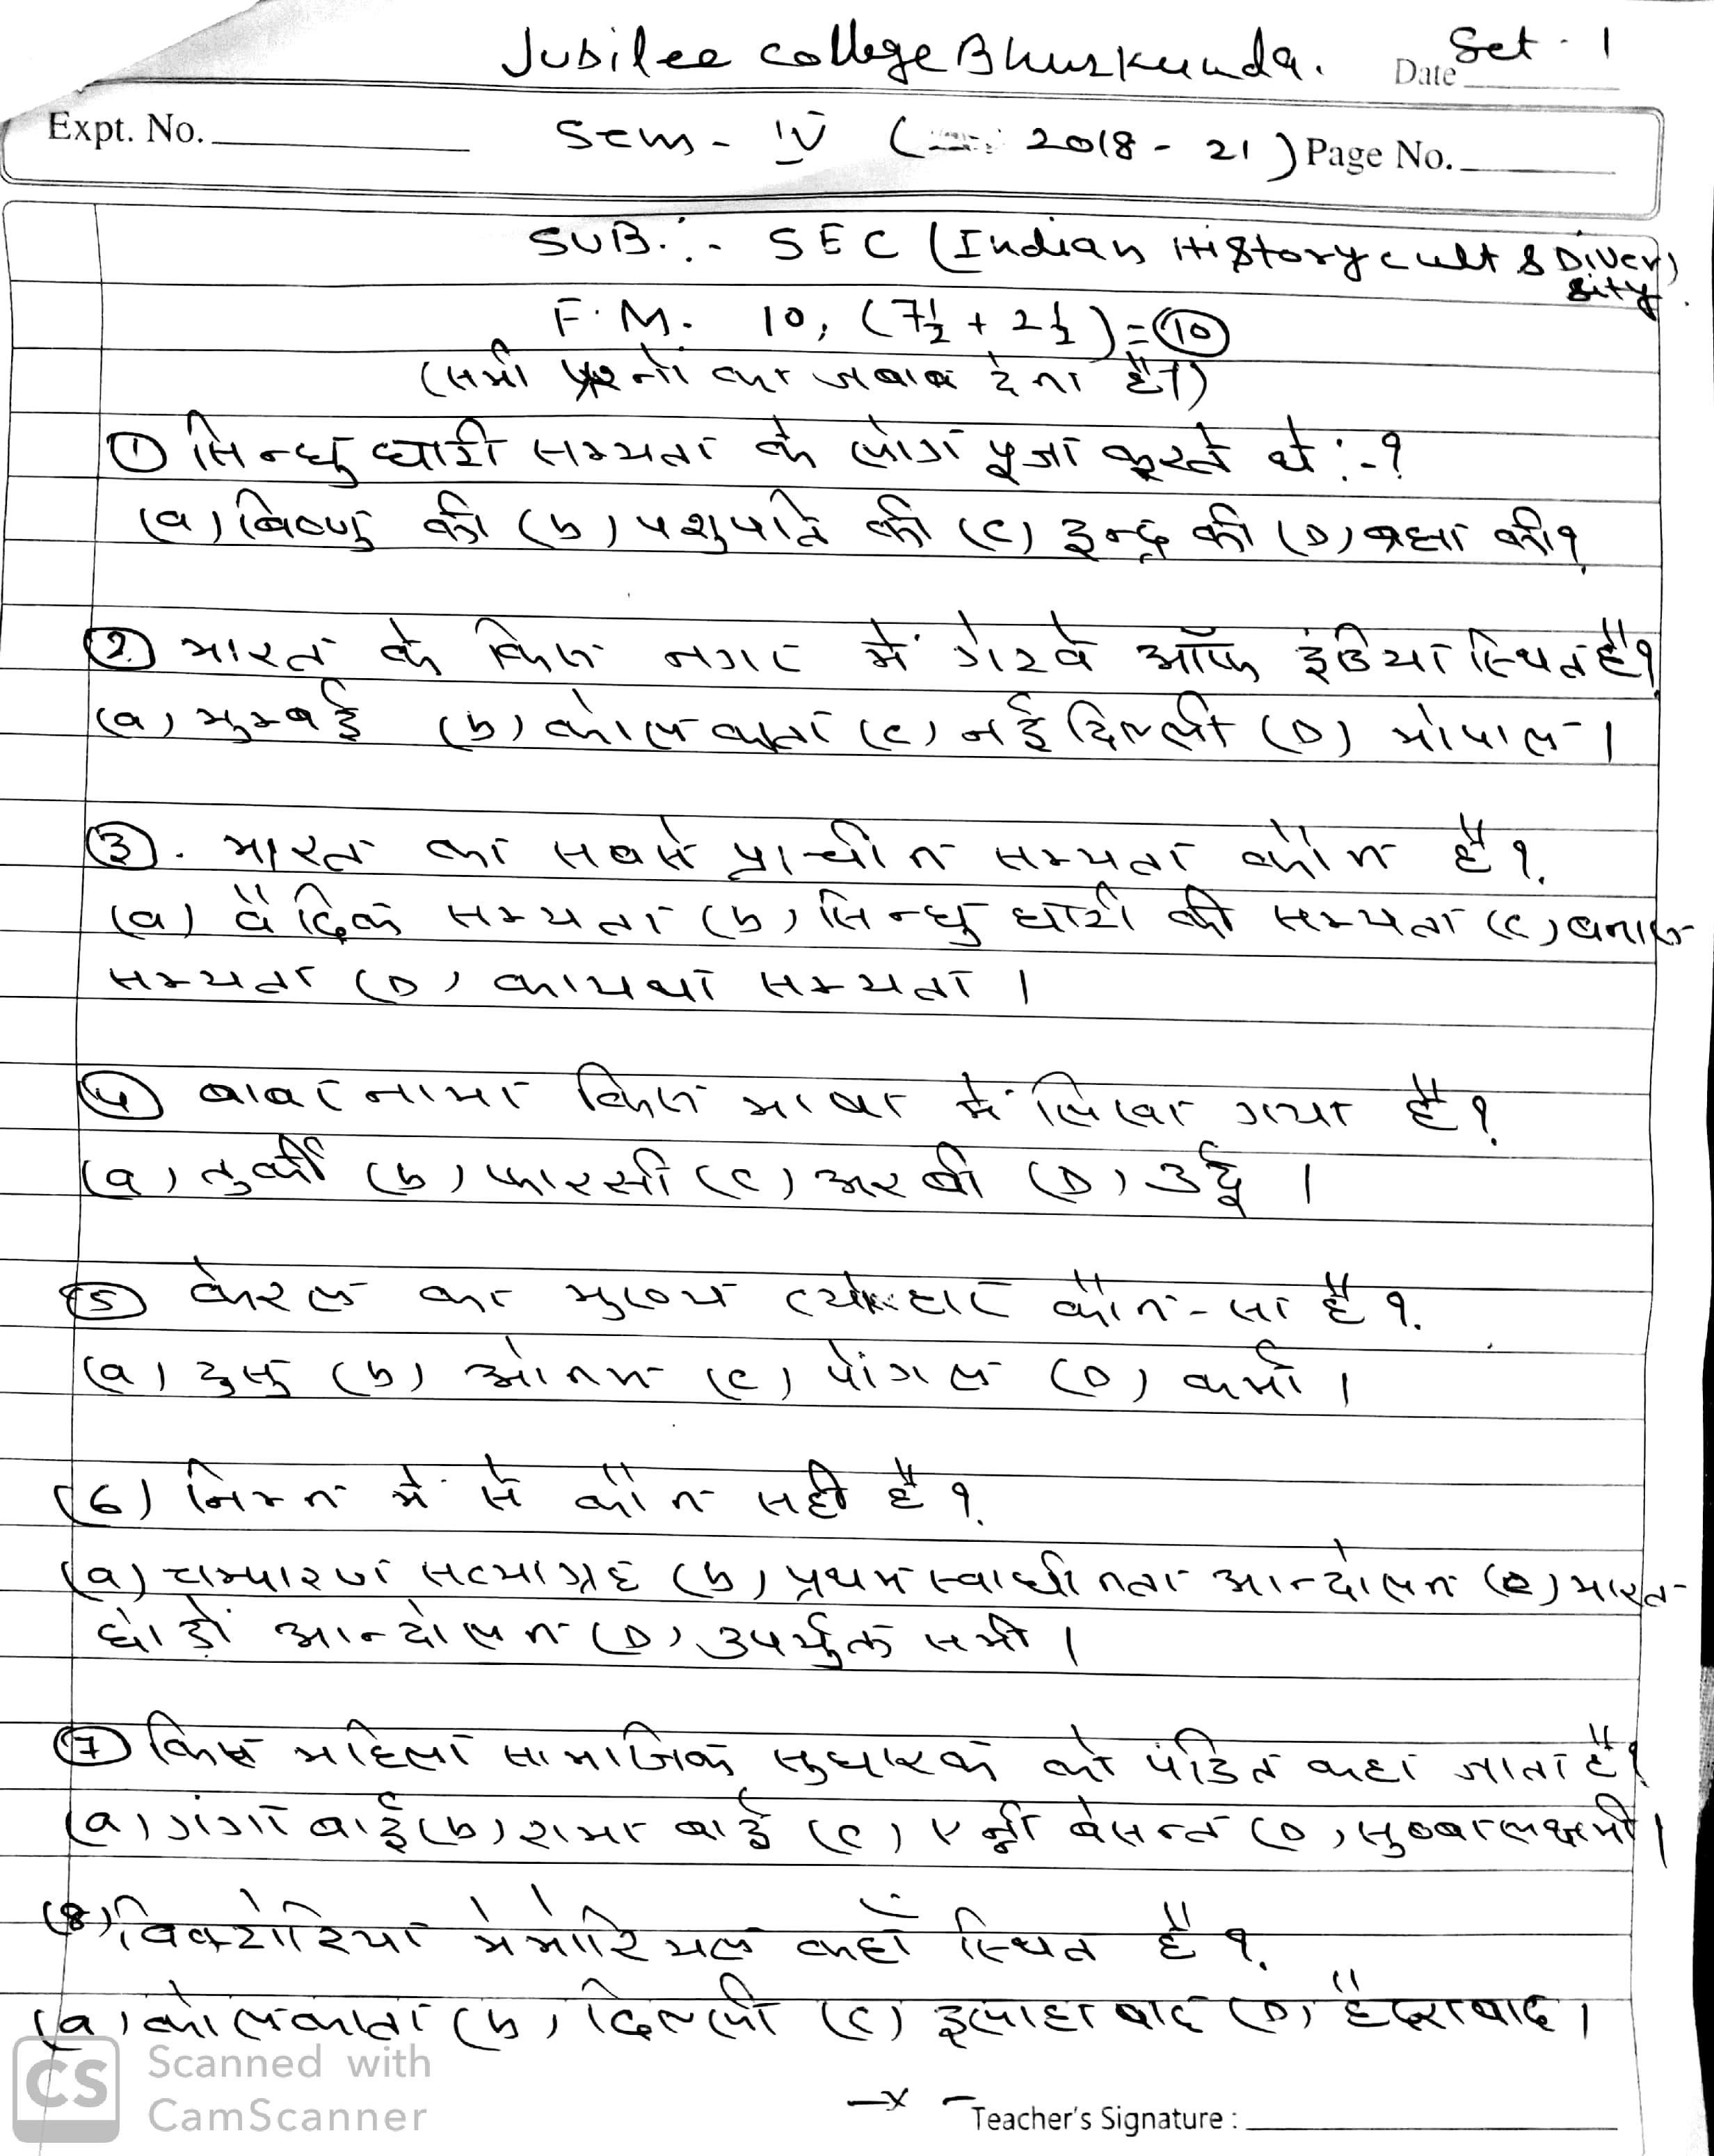 Jubilee college Bhurkunda. Set - 1
Date
Expt. No. Sem - IV ( 2018 - 21 ) Page No.
SUB:- SEC (Indian History cult & Diversity)
F.M. 10, (7½ + 2½) = 10
(सभी प्रश्नों का जवाब देना है।)
① सिन्धु घाटी सभ्यता के लोग पूजा करते थे :-?
(a) विष्णु की (b) पशुपति की (c) इन्द्र की (D) ब्रह्मा की?
② भारत के किस नगर में गेटवे ऑफ इंडिया स्थित है?
(a) मुम्बई (b) कोलकाता (c) नई दिल्ली (D) भोपाल।
③. भारत का सबसे प्राचीन सभ्यता कौन है?
(a) वैदिक सभ्यता (b) सिन्धु घाटी की सभ्यता (c)
सभ्यता (D) कायथा सभ्यता।
④ बाबर नामा किस भाषा में लिखा गया है?
(a) तुर्की (b) फारसी (c) अरबी (D) उर्दू।
⑤ केरल का मुख्य त्योहार कौन-सा है?
(a) टुसु (b) ओनम (c) पोंगल (D) कर्मा।
(6) निम्न में से कौन सही है?
(a) चम्पारण सत्याग्रह (b) प्रथम स्वाधीनता आन्दोलन (c) भारत
छोड़ो आन्दोलन (D) उपर्युक्त सभी।
⑦ किस महिला सामाजिक सुधारक को पंडित कहा जाता है?
(a) गंगा बाई (b) रामा बाई (c) एनी बेसन्त (D) सुब्बालक्ष्मी।
(8) विक्टोरिया मेमोरियल कहाँ स्थित है?
(a) कोलकाता (b) दिल्ली (c) इलाहाबाद (D) हैदराबाद।
CS Scanned with
CamScanner
—x—
Teacher's Signature :